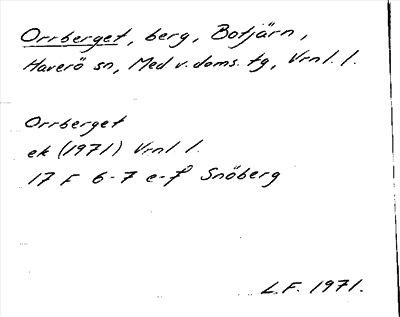 Orrberget, berg, Botjärn,
Haverö sn, Med v. doms. tg, Vrml. l.
Orrberget
ek (1971) Vrnl l.
17 F 6-7 e-f Snöberg
L.F. 1971.